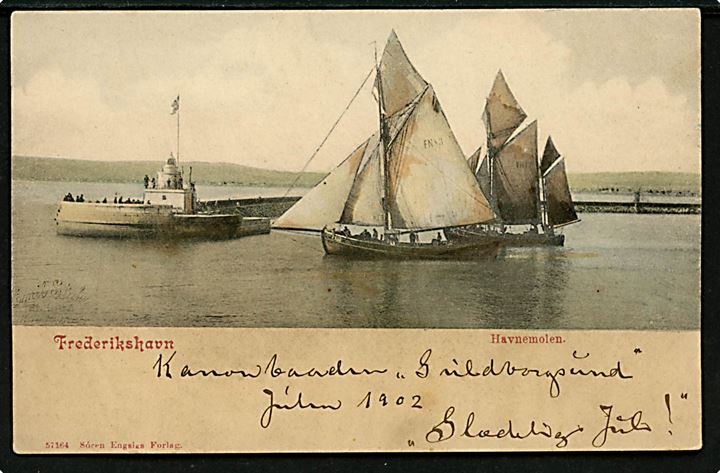 FN
Frederikshavn
Havnemolen.
Kanonbaaden „Guldborgsund"
Julen 1902
„Glædelig Jul!"
57164 Sören Engsigs Forlag.